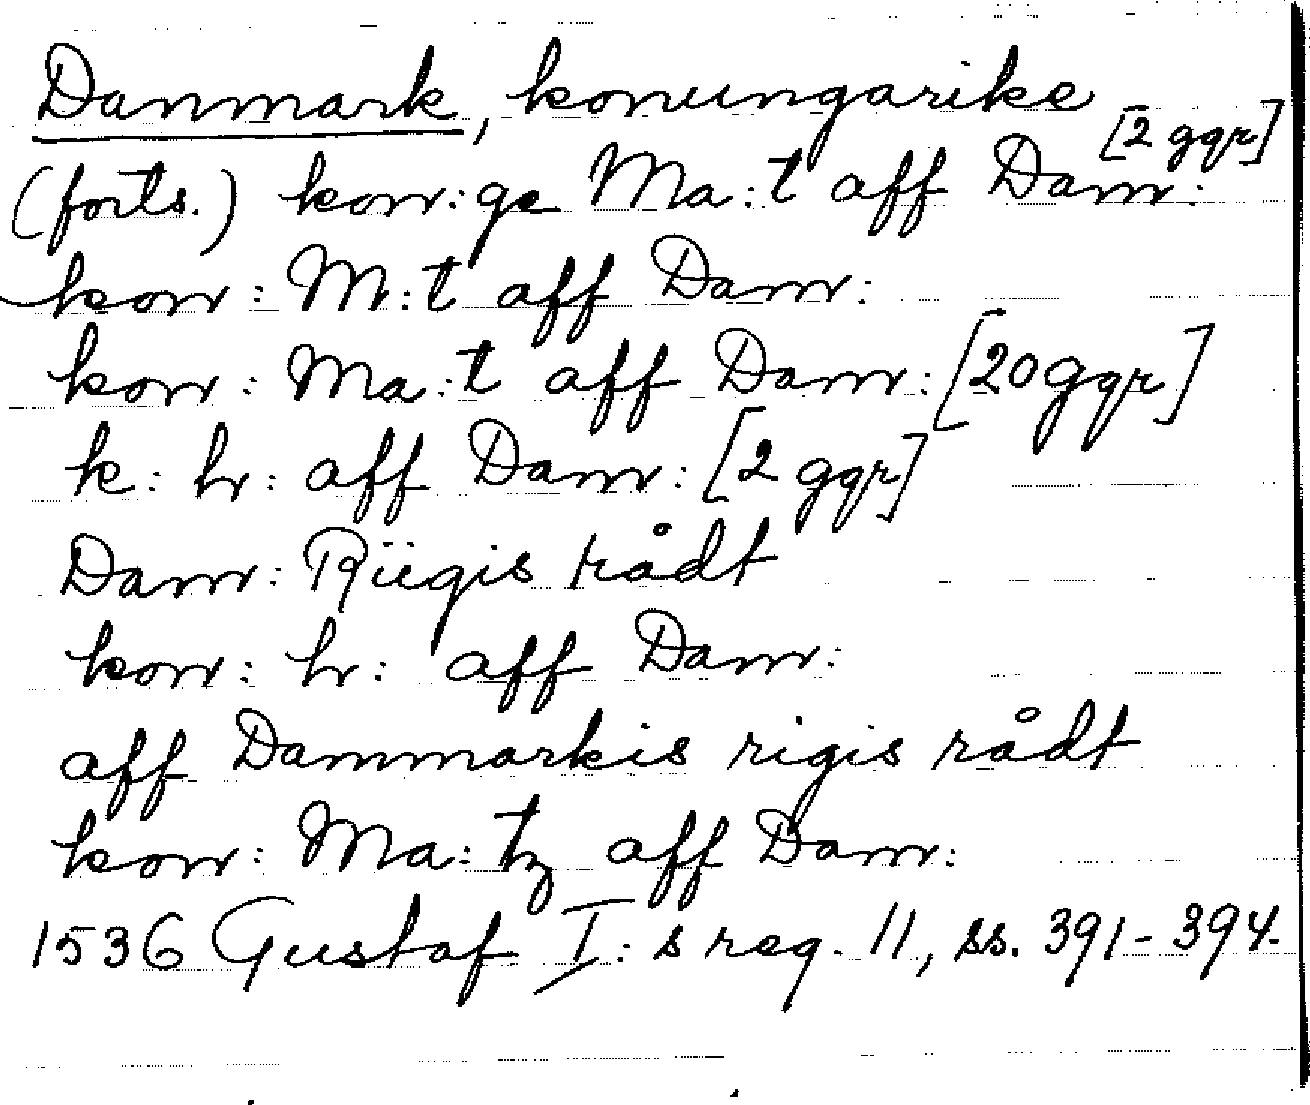 Danmark, konungarike
[2 ggr]
(forts.) kon:ge Ma:t aff Dam:
kon: M:t aff Dam:
kon: Ma:t aff Dam: [20 ggr]
k: hr: aff Dam: [2 ggr]
Dam: Riigis rådt
kon: hr: aff Dam:
aff Dammarkis rigis rådt
kon: Ma:tz aff Dam:
1536 Gustaf I:s reg. 11, ss. 391-394.